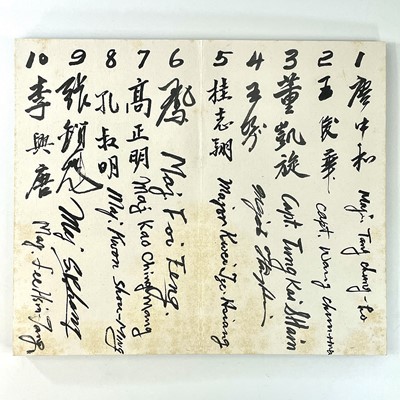 1 唐中和 Maj. Tang Chung-ho
2 王俊華 Capt. Wang Chun-hua
3 董凱旋 Capt. Tung Kai SHain
4 王 Major
5 桂志翔 Major Kwei Tze-Hsiang
6 Maj. Foi Feng.
7 高正明 Maj Kao Ching-mang
8 孔叔明 Maj. Kwon Shou-Ming
9 張 Maj
10 李興唐 Maj. Lee Hsin-Tang